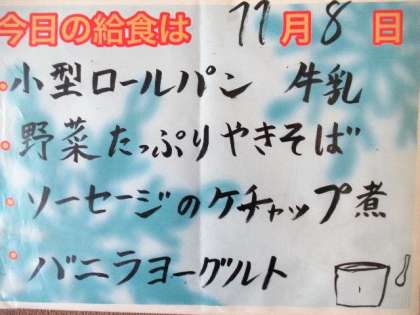 今日の給食は 11月8日
・小型ロールパン 牛乳
・野菜たっぷりやきそば
・ソーセージのケチャップ煮
・バニラヨーグルト